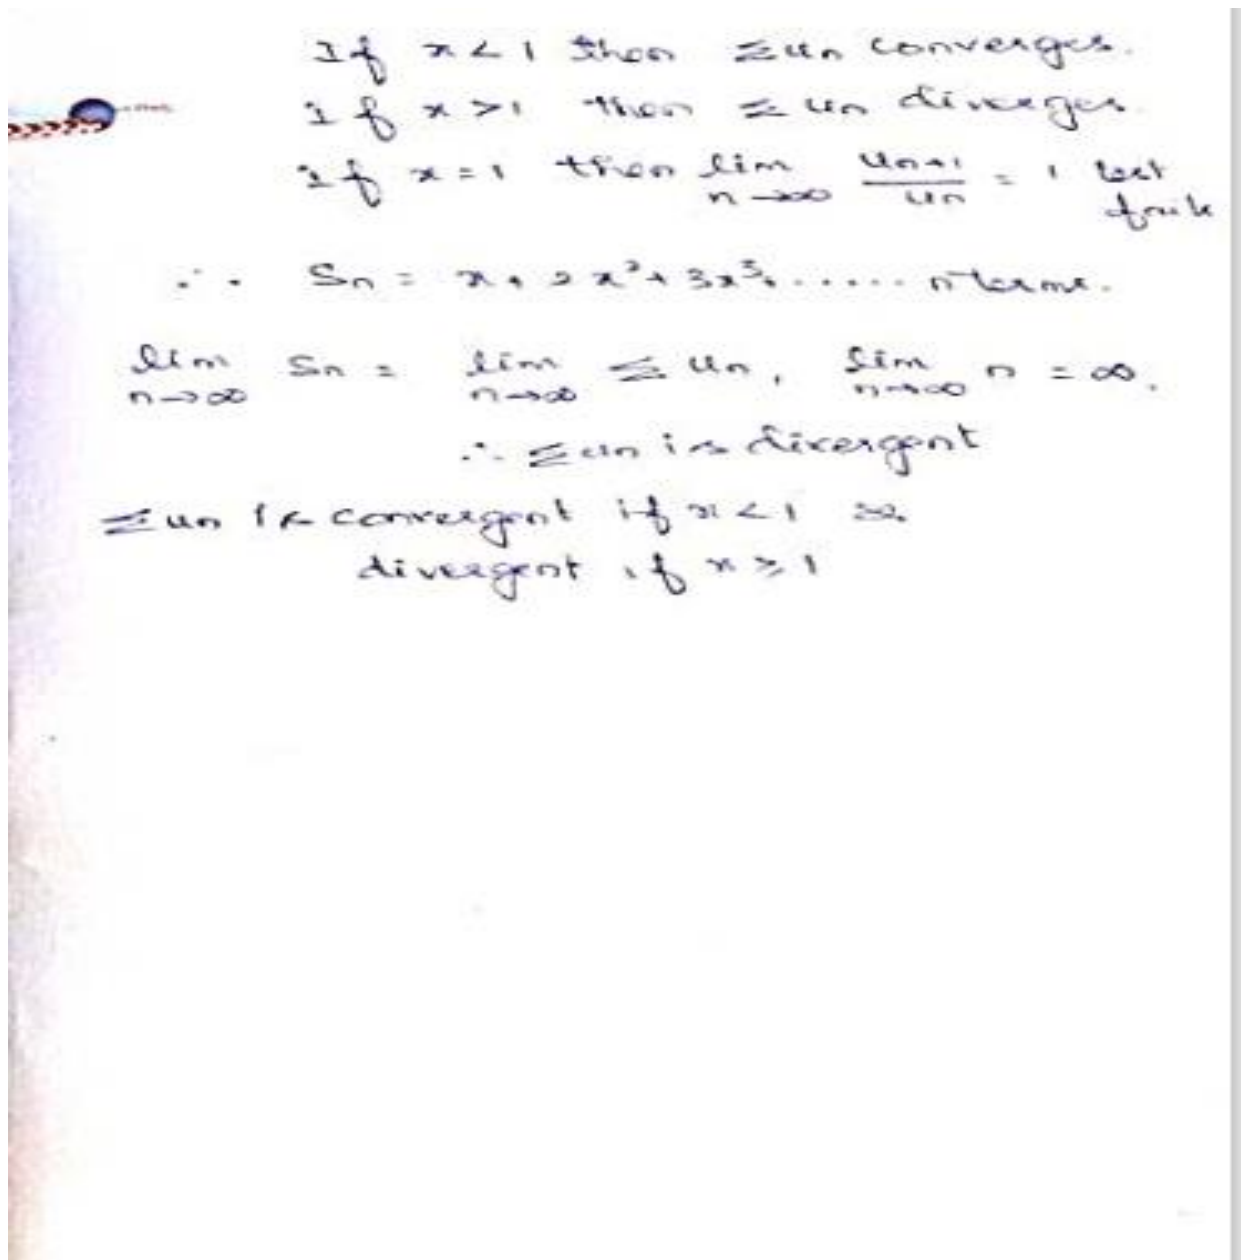 If x < 1 then Σun converges.
If x > 1 then Σ un diverges.
If x = 1 then lim n→∞ un+1/un = 1 test fails
∴ Sn = x + 2x² + 3x³ + ...... n terms.
lim n→∞ Sn = lim n→∞ Σ un, lim n→∞ n = ∞.
∴ Σun is divergent
Σun is convergent if x < 1 &
divergent if x ≥ 1